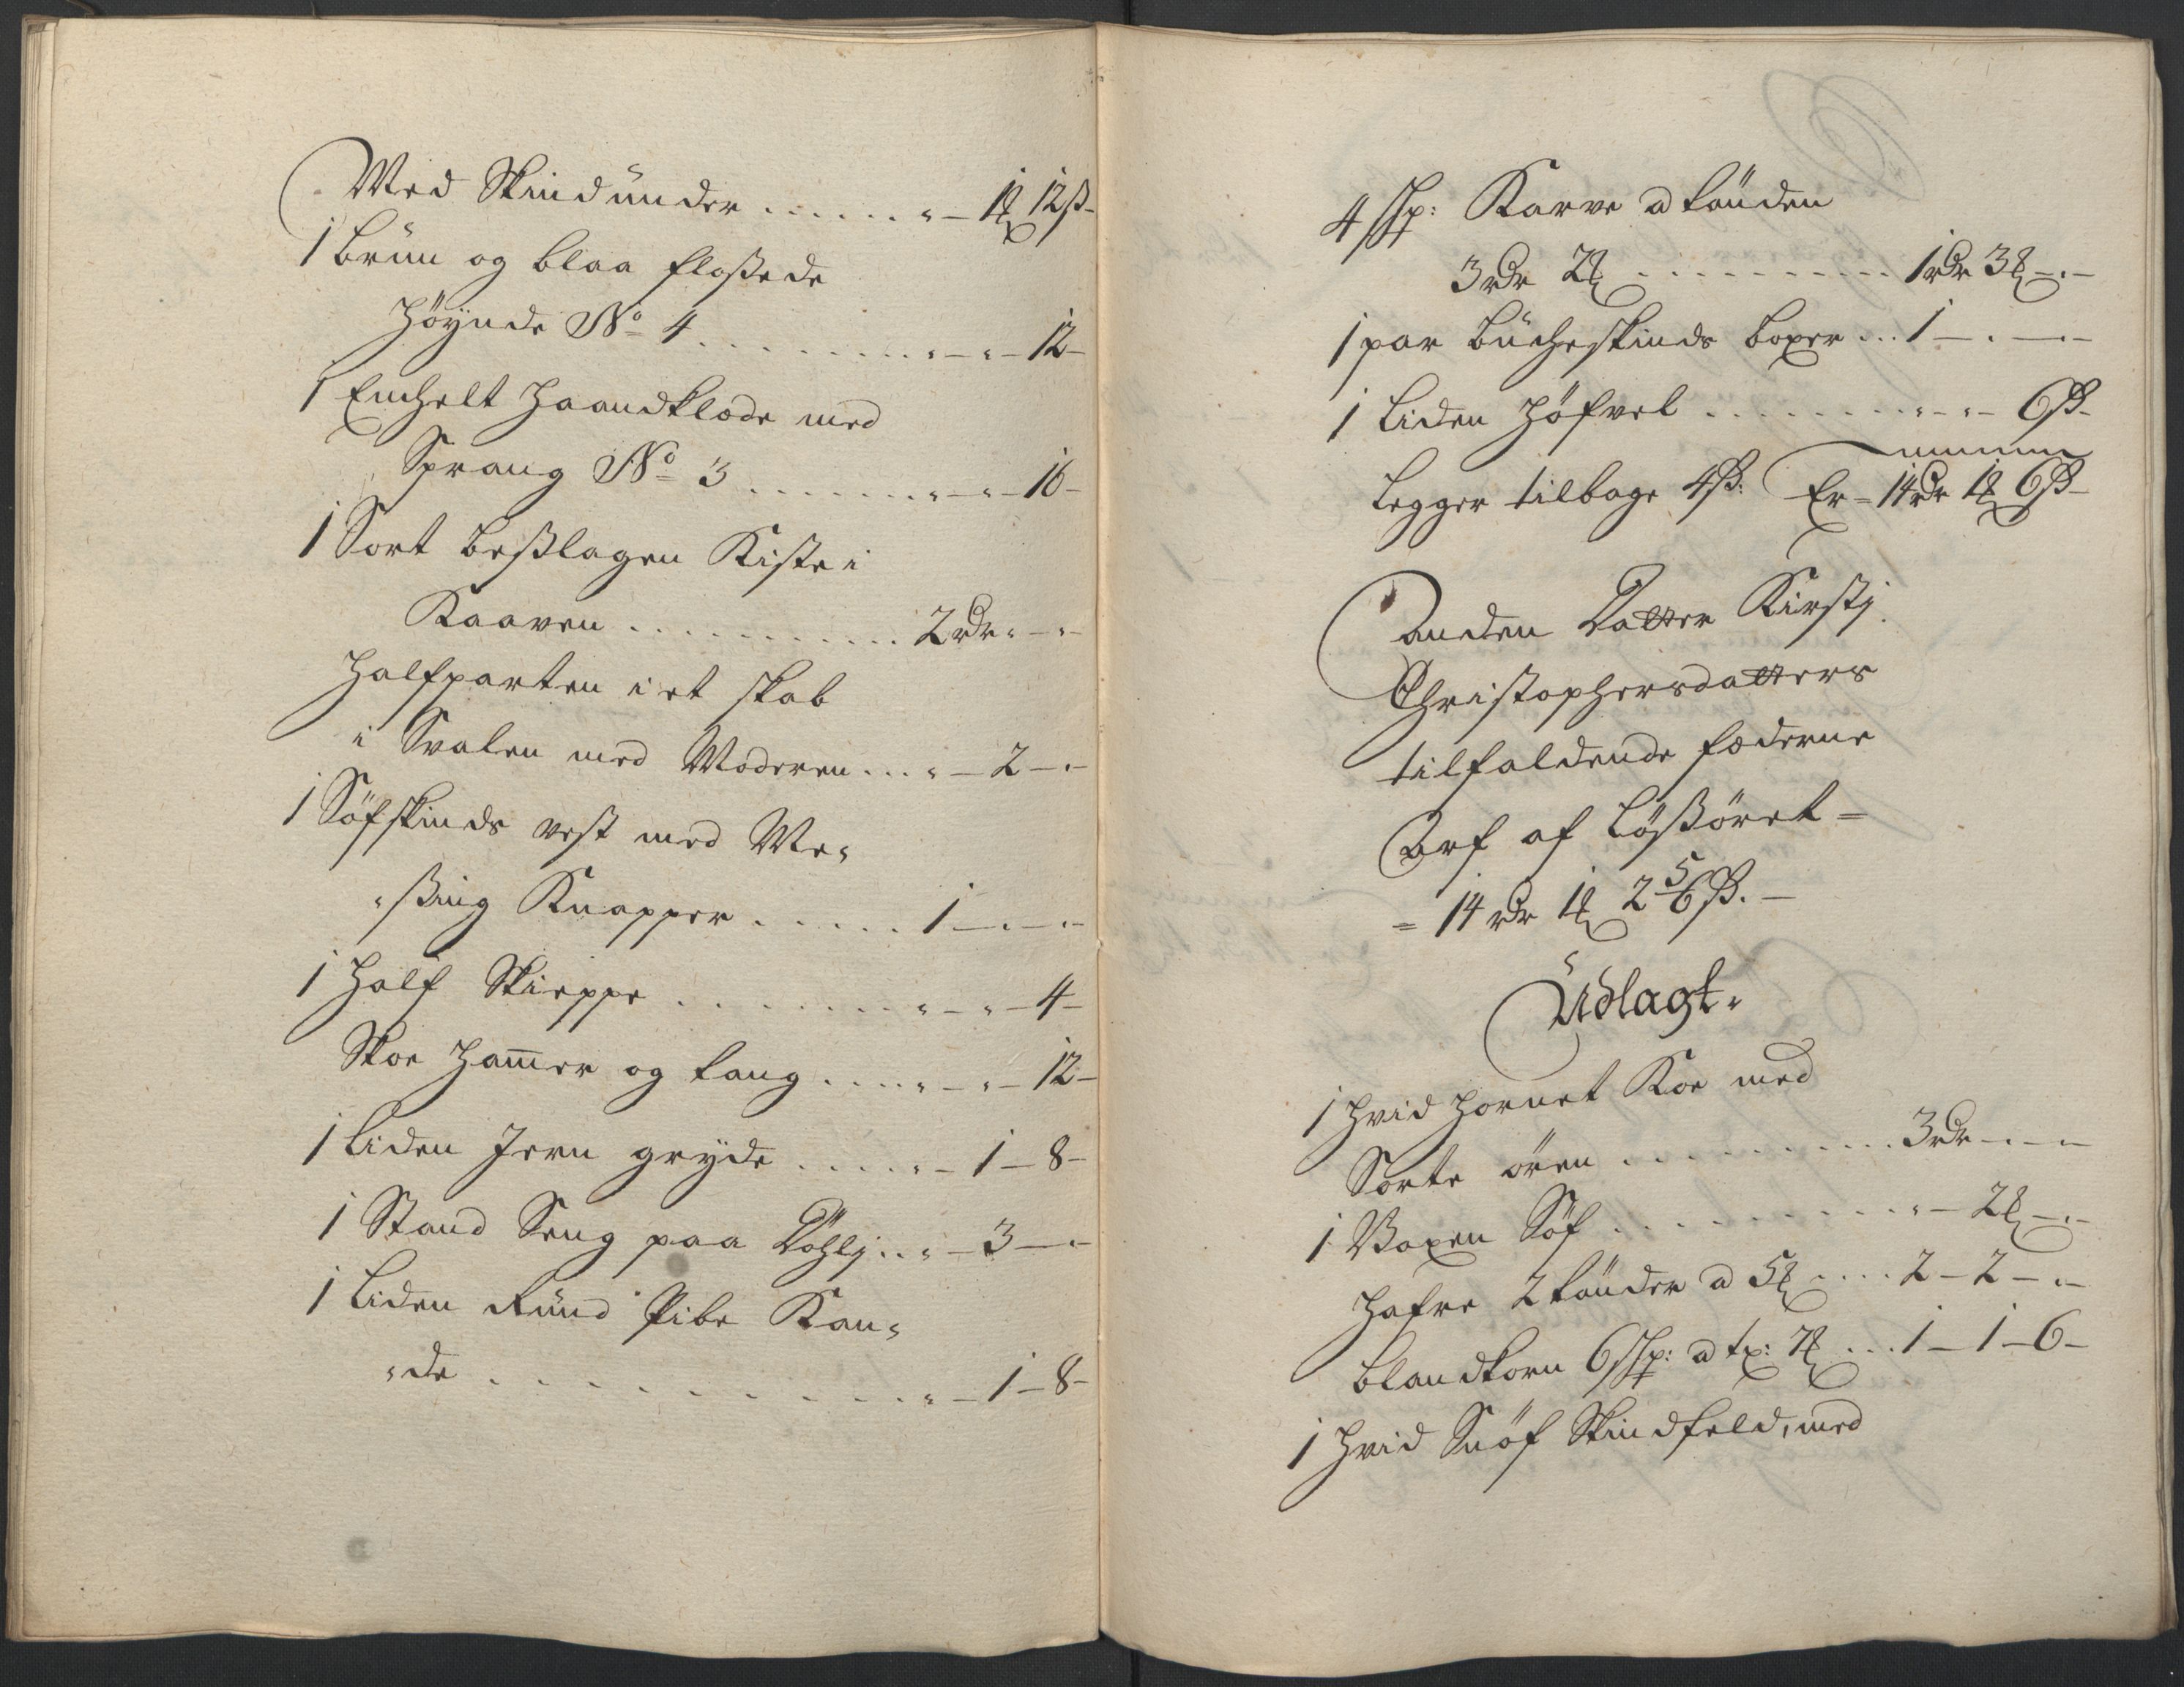 Med Skind under ...... " - 1 ort 12 ß -
1 brun og blaa flossede
Höynde No 4 ......... " - " - 12 -
1 Enchelt Haandklæde med
Sprang No 3 ....... " - " - 16 -
1 Sort beslagen Kiste i
Kaaven ............ 2 rdr " - " -
Halfparten i et skab
i Svalen med Moderen ... " - 2 - " -
1 Söfskinds vest med Me"
"ssing Knapper ...... 1 - " - " -
1 Half Skieppe ....... " - " - 4 -
Skoe Hammer og tang .... " - " - 12 -
1 liden Jern gryde ..... " - 1 - 8 -
1 Stand Seng paa Döhly .. " - 3 - " -
1 liden Rund Pibe Kan"
"de .......... " - 1 - 8 -
4 Shp: Karve a tönden
3 rdr 2 ort .......... 1 rdr 3 ort - " -
1 par bucheskinds boxer ... 1 - " - " -
1 liden Höfvel ......... " - " - 6 ß -
Legger tilbage 4 ß: Er = 14 rdr 1 ort 6 ß -
Anden Datter Kirsti
Christophersdatters
tilfaldende fæderne
Arf af Lössöret =
= 14 rdr 1 ort 2 5/6 ß. -
Udlagt.
1 hvid hornet Koe med
Sorte ören .......... 3 rdr - " - " -
1 Voxen Söf .......... " - 2 ort - " -
Hafre 2 tönder a 5 ort .... 2 - 2 - " -
blandkorn 6 Shp: a tr: 7 ort ... 1 - 1 - 6 -
1 hvid Snöf Skindfeld, med